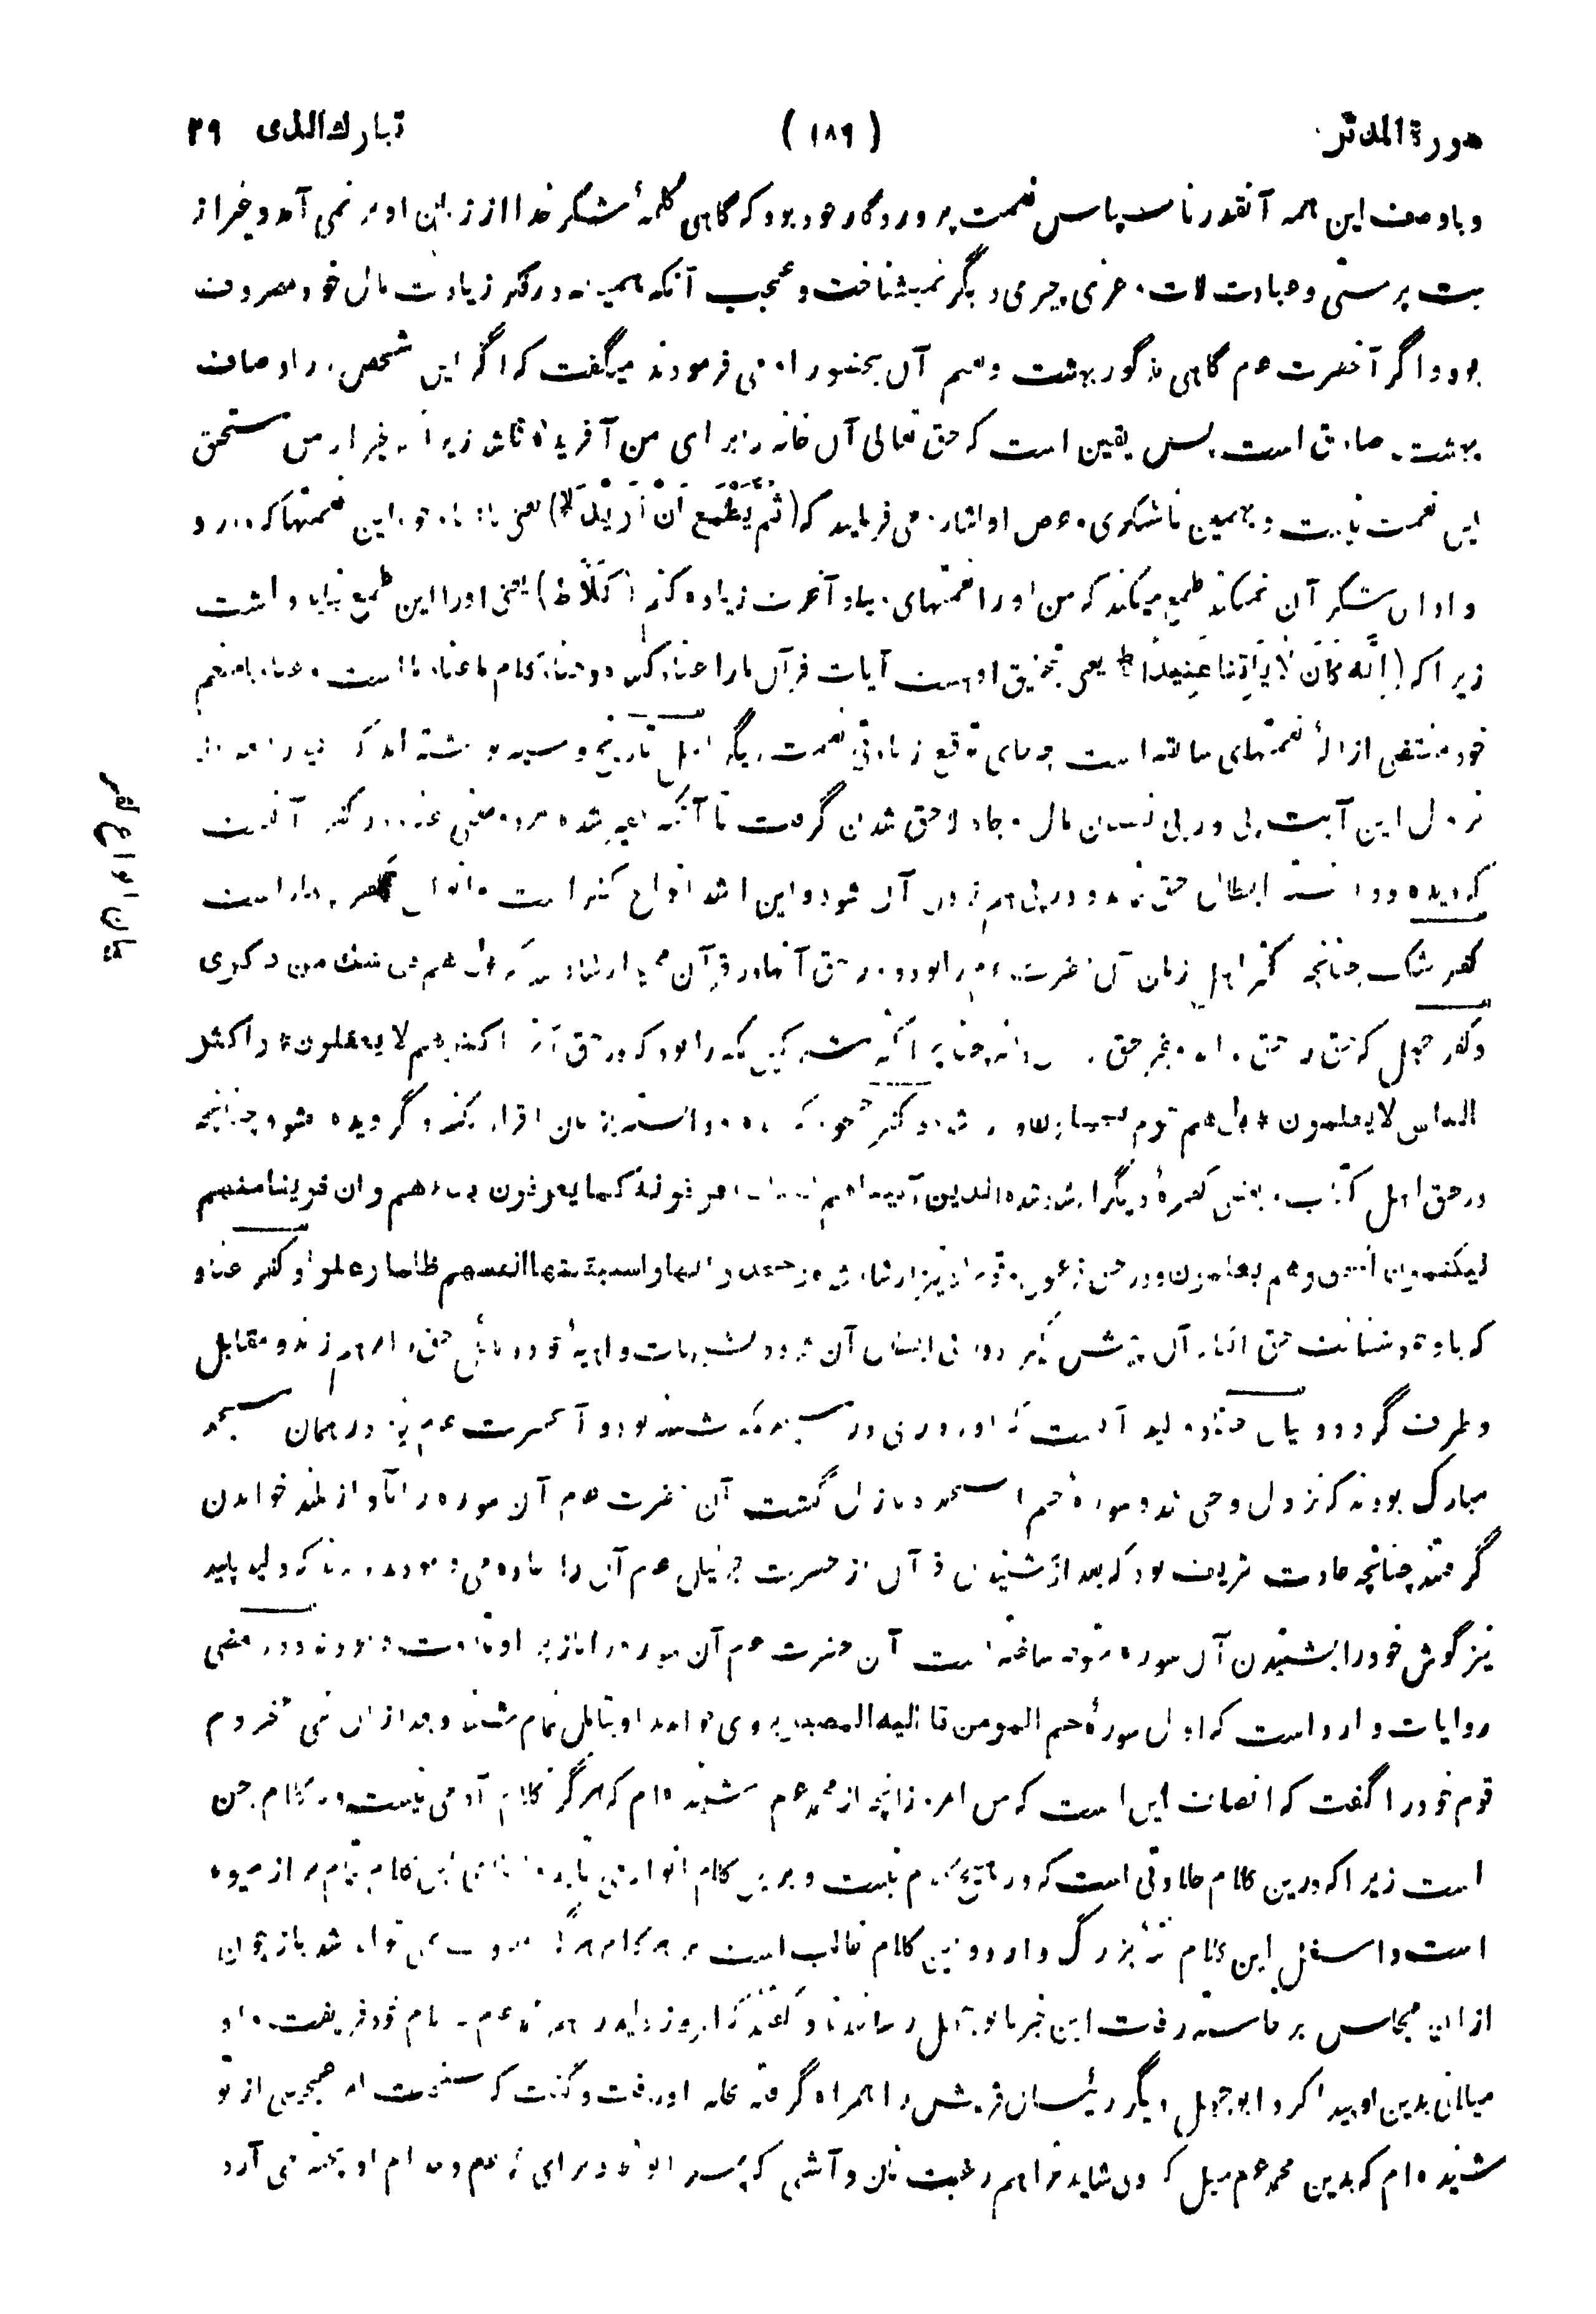 سورة المدثر
(۱۸۹)
تبارك الذى ۲۹
و باوصف این همه آنقدر ناسپاس نعمت پروردگار خود بود که گاهی کلمهٔ شکر خدا از زبان او بر نمی آمد و غیر از
بت پرستی و عبادت لات و عزی چیزی دیگر نمیشناخت و عجب آنکه همیشه در فکر زیادت مال خود مصروف
بود و اگر آنحضرت عم گاهی مذکور بهشت و نعیم آن بحضور او می فرمودند میگفت که اگر این شخص در اوصاف
بهشت صادق است پس یقین است که حق تعالی آن خانه را برای من آفریده باشد زیرا که غیر از من مستحق
این نعمت نیست و بهمین ناشکری و حرص او اشاره می فرمایند که (ثُمَّ يَطْمَعُ اَنْ اَزِيْدَ لا) یعنی باز این نعمتها که
شکر آن نمیکند طمع میکند که من او را نعمتهای دنیا و آخرت زیاده کنم (كَلَّا ط) یعنی او را این طمع نباید داشت
زیرا که (اِنَّهٗ كَانَ لِاٰيٰتِنَا عَنِيْدًا ط) یعنی بتحقیق او هست آیات قرآن ما را عناد کننده و عناد کلام ما عناد ما است و عناد با منعم
خود مقتضی ازالهٔ نعمتهای سابقه است چه جای توقع زیادتی نعمت دیگر اهل تاریخ و سیر نوشته اند که
نزول این آیت پی در پی نقصان مال و جاه لاحق شدن گرفت تا آنکه فقیر شده مرد و معنی عناد در کفر آنست
که دیده و دانسته ابطال حق نماید و در پی برهم زدن آن شود و این اشد انواع کفر است و انواع کفر چهار است
کفر شک چنانچه کفر اهل زمان آنحضرت عم را بود و در حق آنها در قرآن مجید ارشاد شد که بل هم فی شك من ذکری
و کفر جهل که حق را حق و غیر حق نداند چنانچه اکثر مشرکین مکه را بود که در حق آنها اکثرهم لا یعقلون * و اکثر
الناس لا یعلمون * بل هم قوم تجهلون وارد شده و کفر جحود که دیده و دانسته بزبان اقرار نکند و گرویده نشود چنانچه
در حق اهل کتاب و بعض کفرهٔ دیگر ارشاد شده الذین آتیناهم الکتاب یعرفونه کما یعرفون ابناءهم و ان فریقا منهم
لیکتمون الحق و هم یعلمون و در حق فرعون و قوم او نیز ارشاد شده وجحدوا بها واستیقنتها انفسهم ظلما وعلوا و کفر عناد
که باوجود شناخت حق انکار آن پیش گیرد و در پی ابطال آن شود و بشبهات واهیه خود دلائل حق را برهم زند و مقابل
و طرف گردد و بیان عناد ولید آنست که او روزی در مسجد مکه نشسته بود و آنحضرت عم نیز در همان مسجد
مبارک بودند که نزول وحی شد و سورهٔ حم السجده نازل گشت آن حضرت عم آن سوره را بآواز بلند خواندن
گرفتند چنانچه عادت شریف بود که بعد از شنیدن قرآن از حضرت جبرئیل عم آن را اعاده می فرمودند که ولید پلید
نیز گوش خود را بشنیدن آن سوره متوجه ساخته است آن حضرت عم آن سوره را باز بر او تلاوت فرمودند و در بعضی
روایات وارد است که اول سورهٔ حم المومن تا الیه المصیر بروی خواندند او بتامل تمام شنید و بعد از آن بنی مخزوم
قوم خود را گفت که انصاف این است که من امروز آنچه از محمد عم شنیده ام که هرگز کلام آدمی نیست و نه کلام جن
است زیرا که درین کلام حلاوتی است که در هیچ کلام نیست و برین کلام انوار می تابد و اعلای این کلام تمام پر از میوه
است و اسفل این کلام تنهٔ بزرگ دارد و این کلام غالب است بر هر کلام هرگز مغلوب نمی تواند شد باز چون
ازان مجلس برخاسته رفت این خبر بابوجهل رساندند و گفتند که امروز ولید بر محمد عم بکلام خود فریفت و او
میلانی بدین او پیدا کرد ابوجهل دیگر رئیسان قریش را همراه گرفته بخانه او رفت و گفت که سخت امر عجیبی از تو
شنیده ام که بدین محمد عم میل کردی شاید ترا هم رغبت نان و آشی که پسر ابو قحافه برای محمد عم و خدام او پخته می آرد
بیان انواع کفر